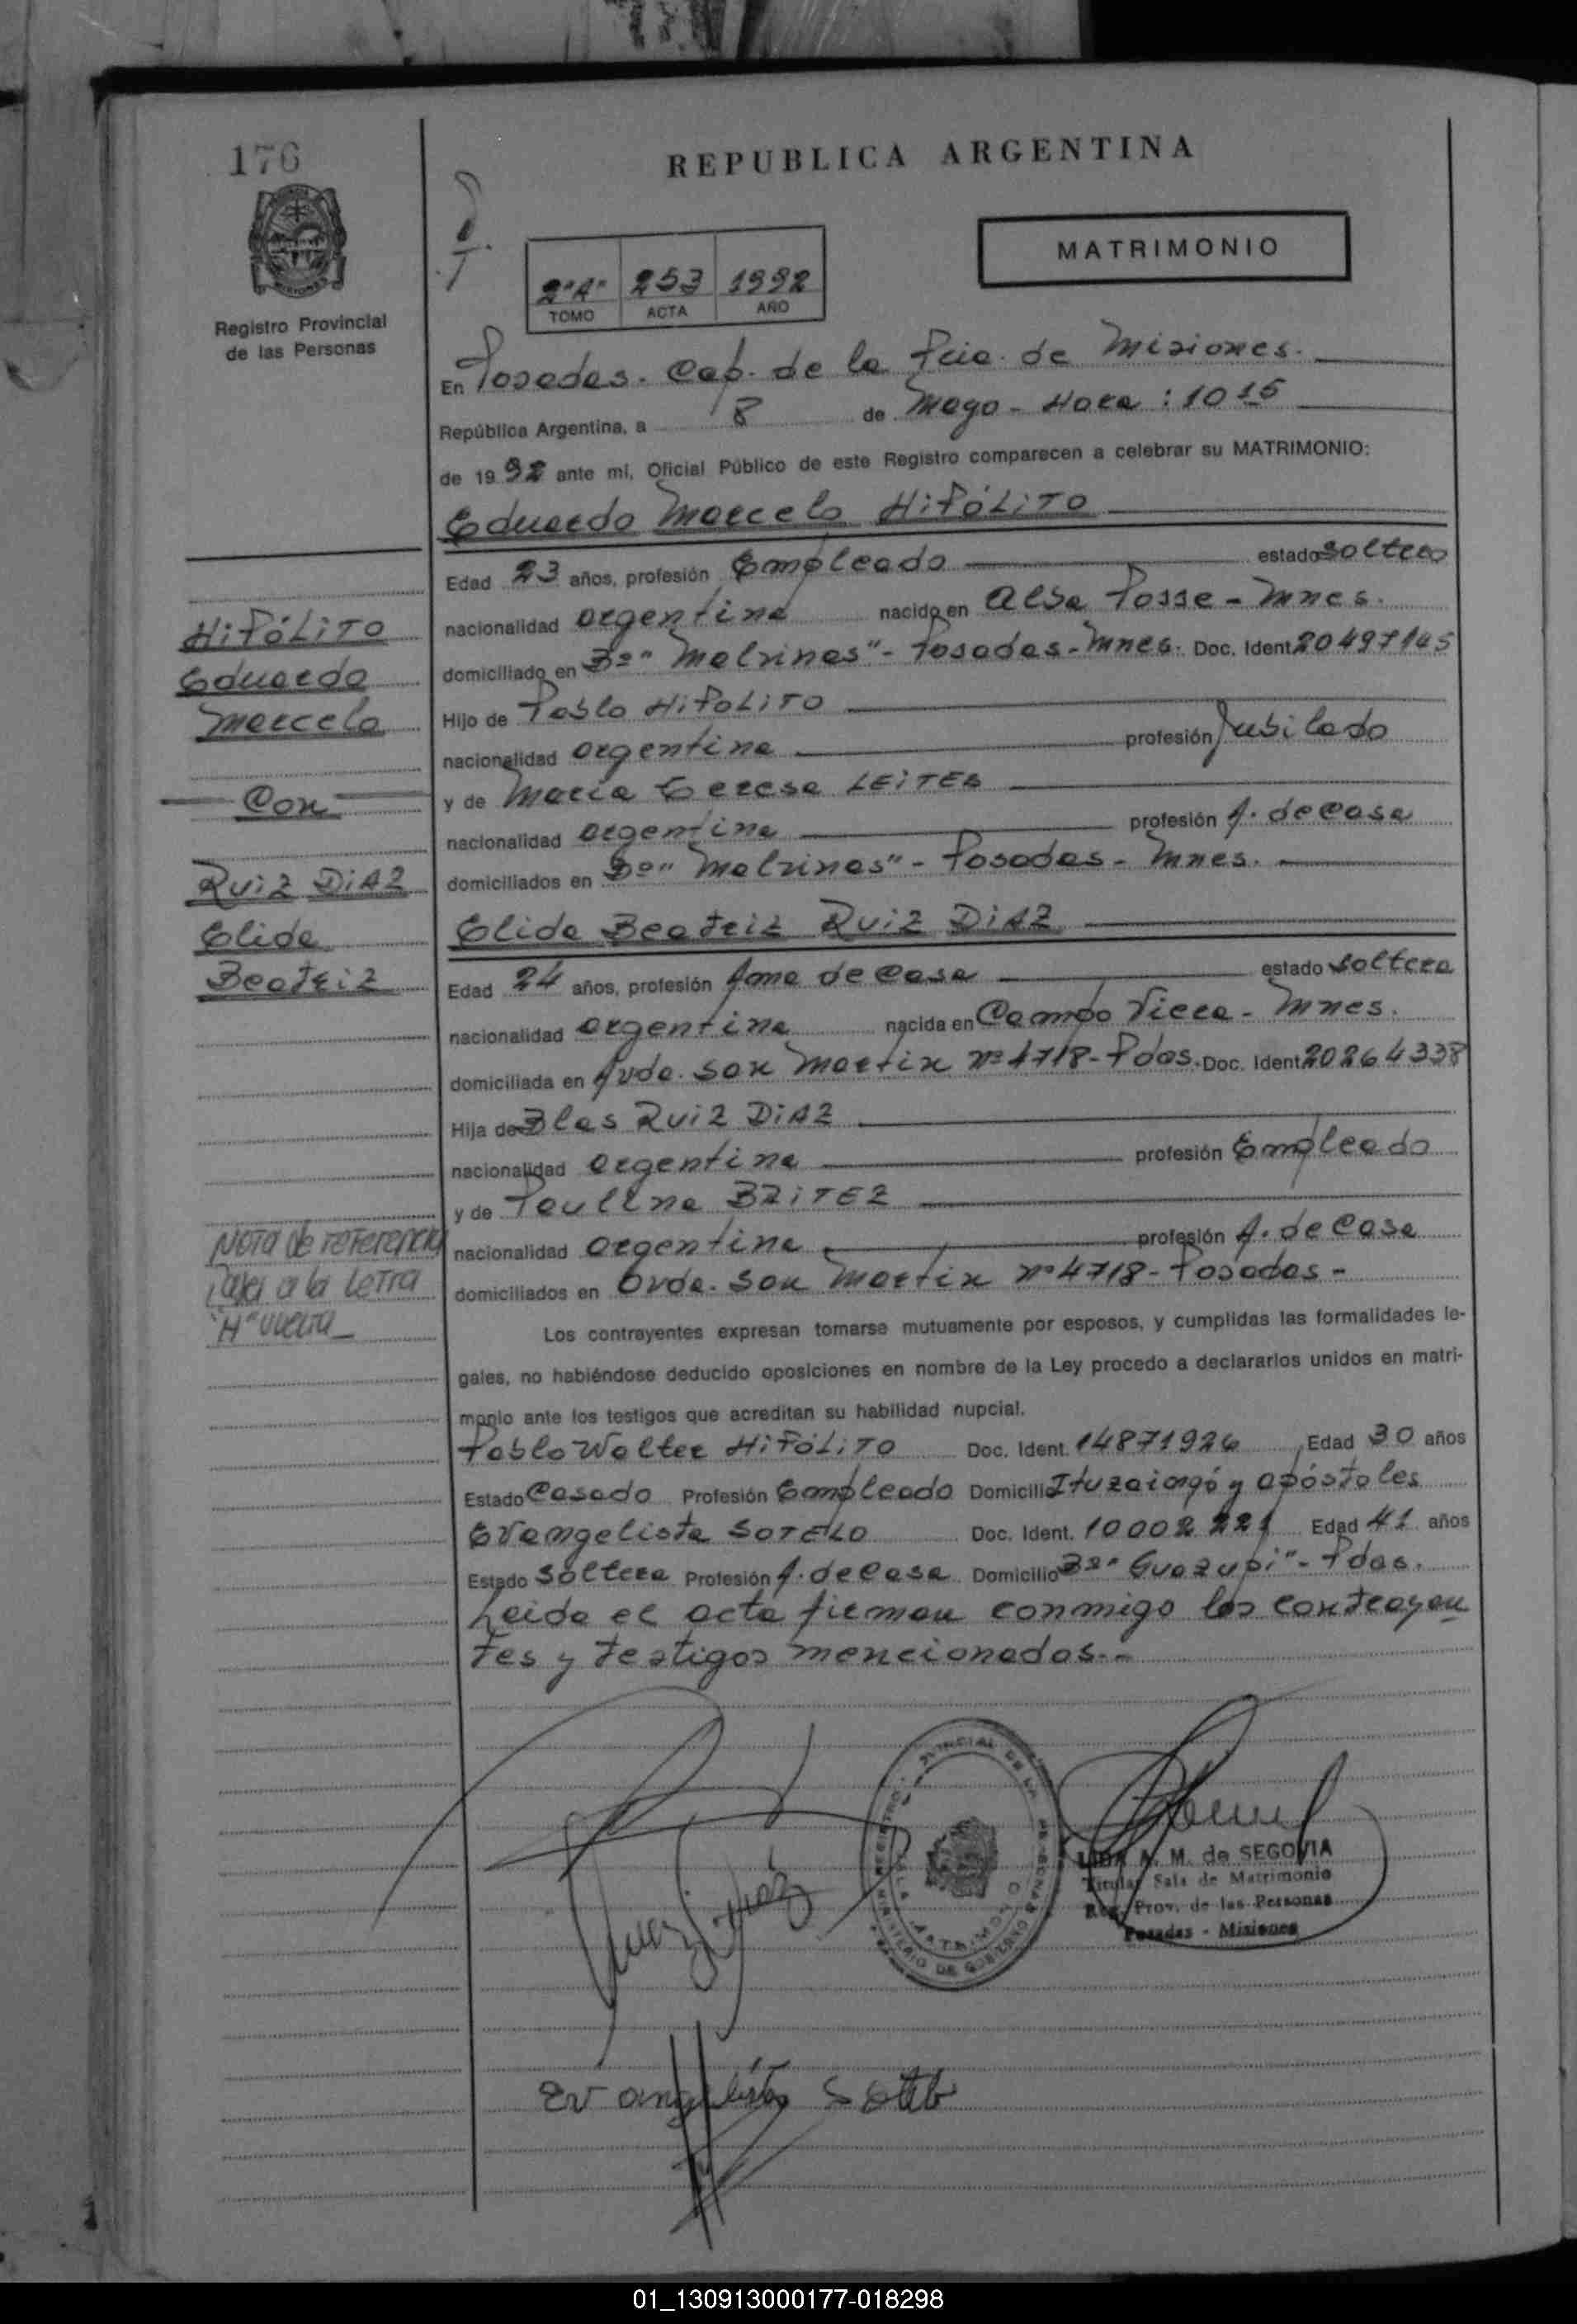 176
REPUBLICA ARGENTINA
MATRIMONIO
2"A" 253 1992
TOMO ACTA AÑO
Registro Provincial
de las Personas
En Posadas. Cap. de la Pcia. de Misiones.
República Argentina, a 8 de Mayo - Hora : 10 15
de 1992 ante mi, Oficial Público de este Registro comparecen a celebrar su MATRIMONIO:
Eduardo Marcelo HiPÓLiTO
Edad 23 años, profesión Empleado estado soltero
nacionalidad argentina nacido en Alba Posse - Mnes.
domiciliado en Bº "Malvinas" - Posadas - Mnes. Doc. Ident 20497145
Hijo de Pablo HiPoLiTO
nacionalidad argentina profesión Jubilado
y de María Teresa LEiTES
nacionalidad argentina profesión A. de Casa
domiciliados en Bº "Malvinas" - Posadas - Mnes.
HiPÓLiTO
Eduardo
Marcelo
Con
RUiZ DiAZ
Elida
Beatriz
Elida Beatriz RUiZ DiAZ
Edad 24 años, profesión Ama de Casa estado soltera
nacionalidad argentina nacida en Campo Viera - Mnes.
domiciliada en Avda. San Martin nº 4718 - Pdas. Doc. Ident 20264338
Hija de Blas RUiZ DiAZ
nacionalidad argentina profesión Empleado
y de Paulina BRiTEZ
nacionalidad argentina profesión A. de Casa
domiciliados en Avda. San Martin nº 4718 - Posadas -
Nota de referencia
Pasa a la Letra
"H" vuelta
Los contrayentes expresan tomarse mutuamente por esposos, y cumplidas las formalidades le-
gales, no habiéndose deducido oposiciones en nombre de la Ley procedo a declararlos unidos en matri-
monio ante los testigos que acreditan su habilidad nupcial.
Pablo Walter HiPÓLiTO Doc. Ident. 14871926 Edad 30 años
Estado Casado Profesión Empleado Domicilio Ituzaingó y Apóstoles
Evangelista SOTELO Doc. Ident. 10002221 Edad 41 años
Estado Soltera Profesión A. de Casa Domicilio Bº "Guazupi" - Pdas.
Leida el acta firman conmigo los contrayen
tes y testigos mencionados.-
A. M. de SEGOVIA
Titular Sala de Matrimonio
Reg. Prov. de las Personas
Posadas - Misiones
Evangelista Sotelo
01_130913000177-018298